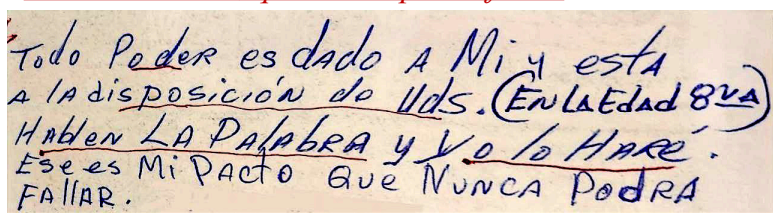 Todo Poder es dado A Mi y estA
A lA disposición de Uds. (En LA EdAd 8va)
HAblen LA PAlAbRA y Yo lo HARé.
Ese es Mi PActo Que NuNcA PodRA
FAllAR.